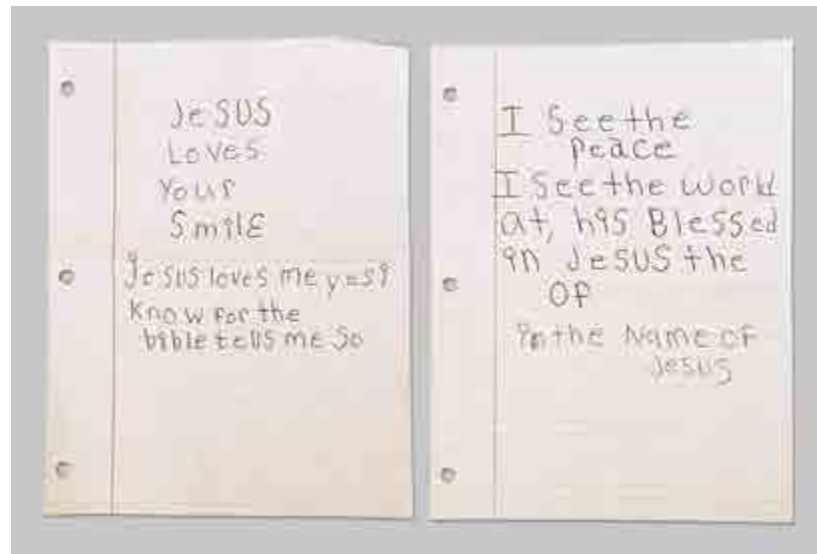 JeSUS
Loves
Your
SmilE
JeSUS loves me yes I
Know for the
bible tells me So
I See the
peace
I See the world
at, his Blessed
in JeSUS the
OF
in the Name of
Jesus